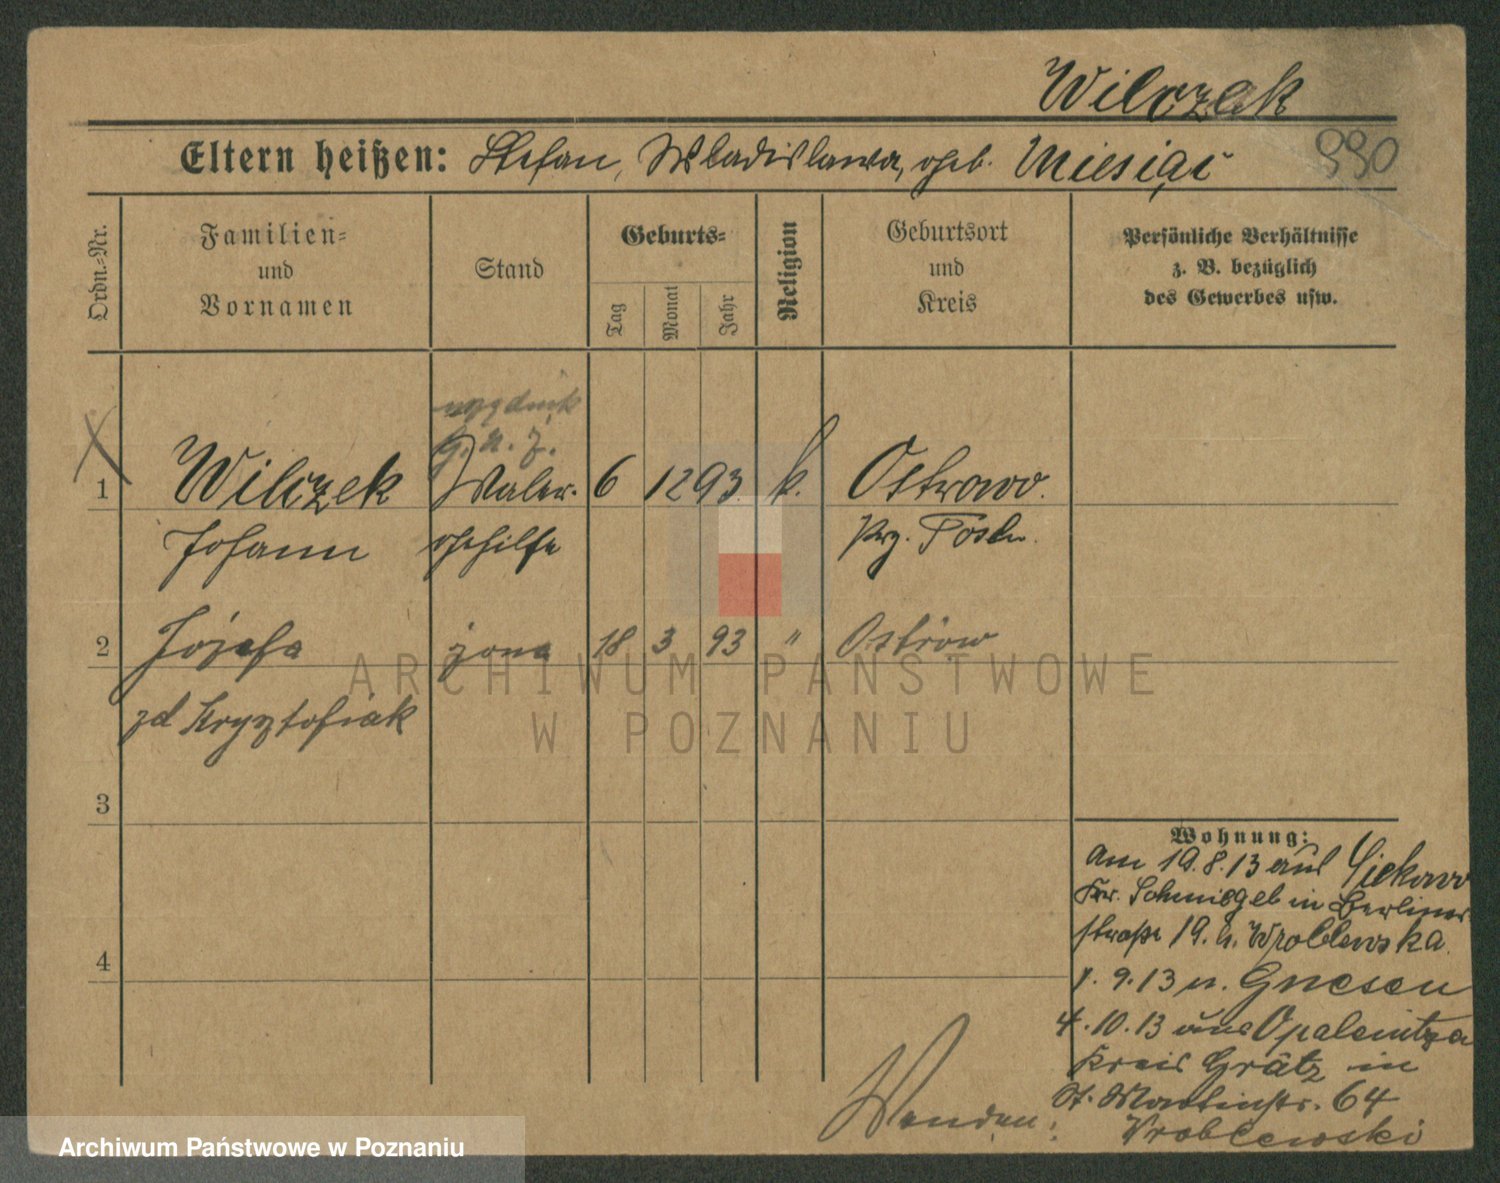 Wilczek
Eltern heißen: Stefan, Wladislawa, geb. Miesiąc
990
Ordn.-Nr.
Familien-
und
Vornamen
Stand
Geburts-
Tag
Monat
Jahr
Religion
Geburtsort
und
Kreis
Persönliche Verhältnisse
z. B. bezüglich
des Gewerbes usw.
G. u. Z.
1 Wilczek Maler- 6 12 93 k. Ostrowo.
Johann gehilfe Prz. Posen.
2 Józefa żona 18 3 93 " Ostrów
zd Krysztofiak
3
4
Wohnung:
Am 19.8.13 aus
Kr. Schmiegel in Berliner
straße 19. b. Wroblewska.
1. 9. 13 n. Gnesen
4. 10. 13 aus Opalenitza
Kreis Grätz in
St. Martinstr. 64
Wroblewski
Wenden!
ARCHIWUM PAŃSTWOWE
W POZNANIU
Archiwum Państwowe w Poznaniu